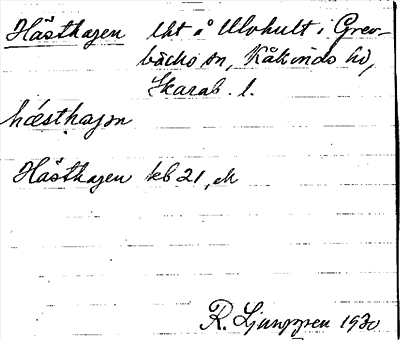 Hästhagen lht å Ulvhult i Grev-
bäcks sn, Kåkinds hd,
Skarab. l.
hǽsthaᶇ̣ən
Hästhagen kb 21, M
R. Ljunggren 1930